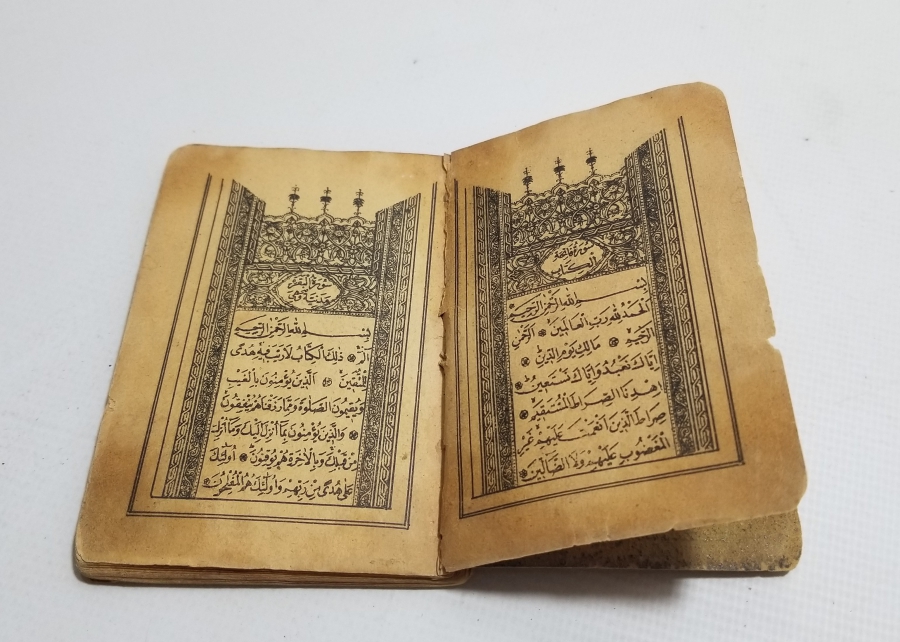 سورة فاتحة
الكتاب
بسم الله الرحمن الرحيم
الحمد لله رب العالمين ۞ الرحمن
الرحيم ۞ مالك يوم الدين ۞
اياك نعبد واياك نستعين ۞
اهدنا الصراط المستقيم ۞
صراط الذين انعمت عليهم غير
المغضوب عليهم ولا الضالين ۞
سورة البقرة
بسم الله الرحمن الرحيم
الم ۞ ذلك الكتاب لا ريب فيه هدى
للمتقين ۞ الذين يؤمنون بالغيب
ويقيمون الصلوة ومما رزقناهم ينفقون
۞ والذين يؤمنون بما انزل اليك وما انزل
من قبلك وبالاخرة هم يوقنون ۞ اولئك
على هدى من ربهم واولئك هم المفلحون ۞